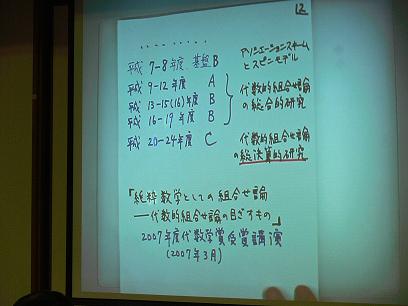 12
平成 7-8年度 基盤B
アソシエーションスキーム
とスピンモデル
平成 9-12年度 A
平成 13-15(16)年度 B
平成 16-19年度 B
代数的組合せ論
の総合的研究
平成 20-24年度 C
代数的組合せ論
の総決算的研究
『純粋数学としての組合せ論
——代数的組合せ論の目ざすもの』
2007年度代数学賞受賞講演
(2007年3月)